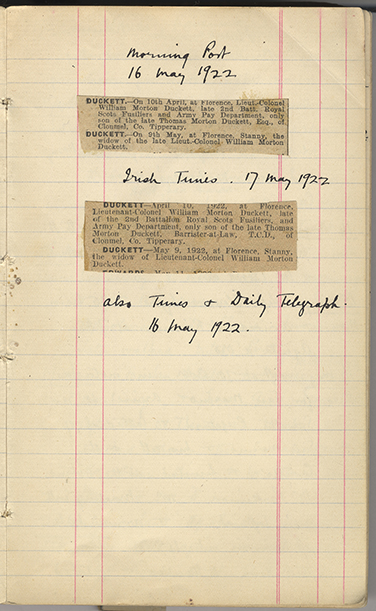 Morning Post
16 May 1922
DUCKETT.—On 10th April, at Florence, Lieut.-Colonel
William Morton Duckett, late 2nd Batt. Royal
Scots Fusiliers and Army Pay Department, only
son of the late Thomas Morton Duckett, Esq., of
Clonmel, Co. Tipperary.
DUCKETT.—On 9th May, at Florence, Stanny, the
widow of the late Lieut.-Colonel William Morton
Duckett.
Irish Times. 17 May 1922
DUCKETT—April 10, 1922, at Florence,
Lieutenant-Colonel William Morton Duckett, late
of the 2nd Battalion Royal Scots Fusiliers, and
Army Pay Department, only son of the late Thomas
Morton Duckett, Barrister-at-Law, T.C.D., of
Clonmel, Co. Tipperary.
DUCKETT—May 9, 1922, at Florence, Stanny,
the widow of Lieutenant-Colonel William Morton
Duckett.
EDWARDS
also Times & Daily Telegraph.
16 May 1922.